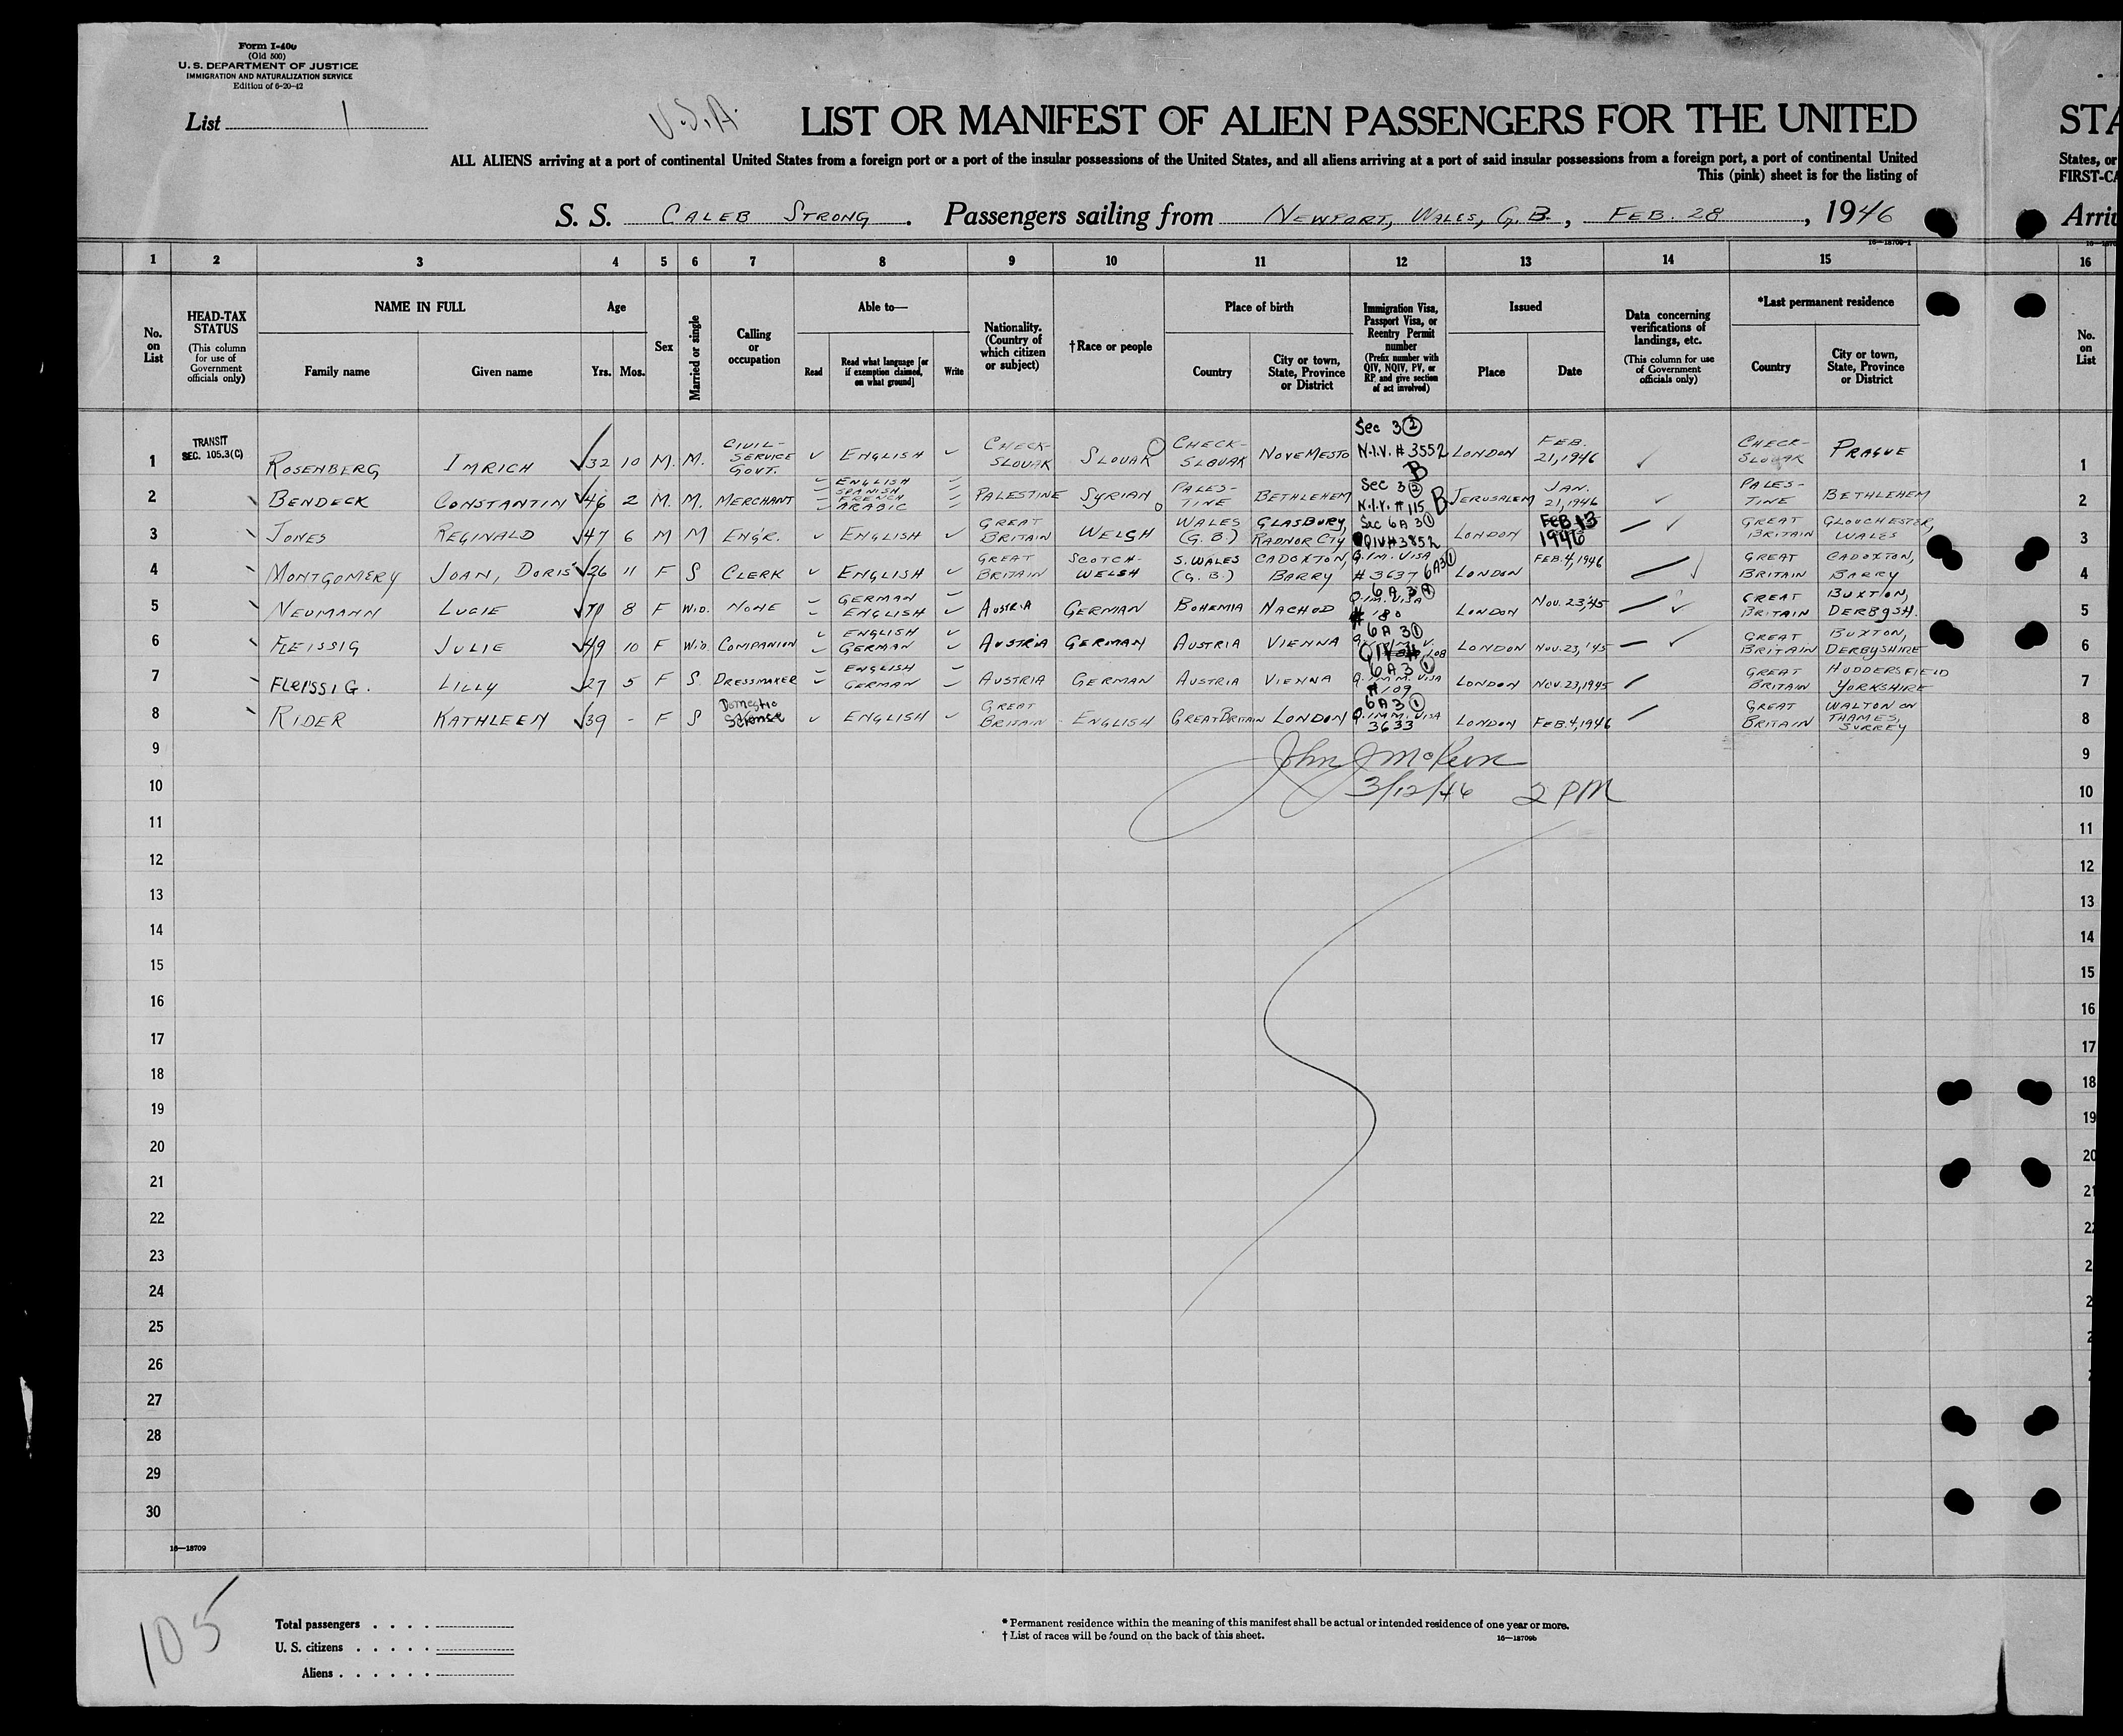 Form I-400
(Old 500)
U. S. DEPARTMENT OF JUSTICE
IMMIGRATION AND NATURALIZATION SERVICE
Edition of 6-20-42
List 1
U.S.A.
LIST OR MANIFEST OF ALIEN PASSENGERS FOR THE UNITED
STA
ALL ALIENS arriving at a port of continental United States from a foreign port or a port of the insular possessions of the United States, and all aliens arriving at a port of said insular possessions from a foreign port, a port of continental United
States, or
This (pink) sheet is for the listing of
FIRST-CA
S. S. CALEB STRONG. Passengers sailing from NEWPORT, WALES, G.B., FEB. 28, 1946
Arriv
16—18709-1
1 2 3 4 5 6 7 8 9 10 11 12 13 14 15 16
No. on List
HEAD-TAX STATUS (This column for use of Government officials only)
NAME IN FULL
Family name Given name
Age
Yrs. Mos.
Sex
Married or single
Calling or occupation
Able to—
Read
Read what language [or if exemption claimed, on what ground]
Write
Nationality. (Country of which citizen or subject)
†Race or people
Place of birth
Country
City or town, State, Province or District
Immigration Visa, Passport Visa, or Reentry Permit number (Prefix number with QIV, NQIV, PV, or RP, and give section of act involved)
Issued
Place Date
Data concerning verifications of landings, etc. (This column for use of Government officials only)
*Last permanent residence
Country
City or town, State, Province or District
No. on List
1 TRANSIT SEC. 105.3(C) ROSENBERG IMRICH 32 10 M. M. CIVIL-SERVICE GOVT. ENGLISH CHECK-SLOVAK SLOVAK CHECK-SLOVAK NOVEMESTO Sec 3 (2) N.I.V. # 3552 B LONDON FEB. 21, 1946 CHECK-SLOVAK PRAGUE 1
2 BENDECK CONSTANTIN 46 2 M. M. MERCHANT ENGLISH SPANISH FRENCH ARABIC PALESTINE SYRIAN PALES-TINE BETHLEHEM Sec 3 (2) N.I.V. # 115 B JERUSALEM JAN. 21, 1946 PALES-TINE BETHLEHEM 2
3 JONES REGINALD 47 6 M M ENGR. ENGLISH GREAT BRITAIN WELSH WALES (G.B.) GLASBURY, RADNOR CTY Sec 6A 3 (1) QIV# 3852 LONDON FEB 13 1946 GREAT BRITAIN GLOUCHESTER, WALES 3
4 MONTGOMERY JOAN, DORIS 26 11 F S CLERK ENGLISH GREAT BRITAIN SCOTCH-WELSH S. WALES (G.B.) CADOXTON, BARRY Q.IM. VISA # 3637 6A3 (1) LONDON FEB. 4, 1946 GREAT BRITAIN CADOXTON, BARRY 4
5 NEUMANN LUCIE 70 8 F WID. NONE GERMAN ENGLISH AUSTRIA GERMAN BOHEMIA NACHOD 6A 3 Q.IM. VISA # 180 LONDON NOV. 23, '45 GREAT BRITAIN BUXTON, DERBYSH. 5
6 FLEISSIG JULIE 49 10 F WID COMPANION ENGLISH GERMAN AUSTRIA GERMAN AUSTRIA VIENNA 6A 3 (1) QIV # 108 LONDON NOV. 23, '45 GREAT BRITAIN BUXTON, DERBYSHIRE 6
7 FLEISSIG. LILLY 27 5 F S. DRESSMAKER ENGLISH GERMAN AUSTRIA GERMAN AUSTRIA VIENNA 6A3 (1) Q.IMM. VISA # 109 LONDON NOV. 23, 1945 GREAT BRITAIN HUDDERSFIELD YORKSHIRE 7
8 RIDER KATHLEEN 39 - F S Domestic Science ENGLISH GREAT BRITAIN ENGLISH GREAT BRITAIN LONDON 6A3 (1) Q.IMM. VISA 3633 LONDON FEB. 4, 1946 GREAT BRITAIN WALTON ON THAMES, SURREY 8
9 9
John J McKeon
10 3/12/46 2 PM 10
11 11
12 12
13 13
14 14
15 15
16 16
17 17
18 18
19 19
20 20
21 21
22 22
23 23
24 2
25 2
26 2
27 2
28
29
30
16—18709
105
Total passengers . . . .
U. S. citizens . . . . .
Aliens . . . . . .
* Permanent residence within the meaning of this manifest shall be actual or intended residence of one year or more.
† List of races will be found on the back of this sheet.
16—18709b